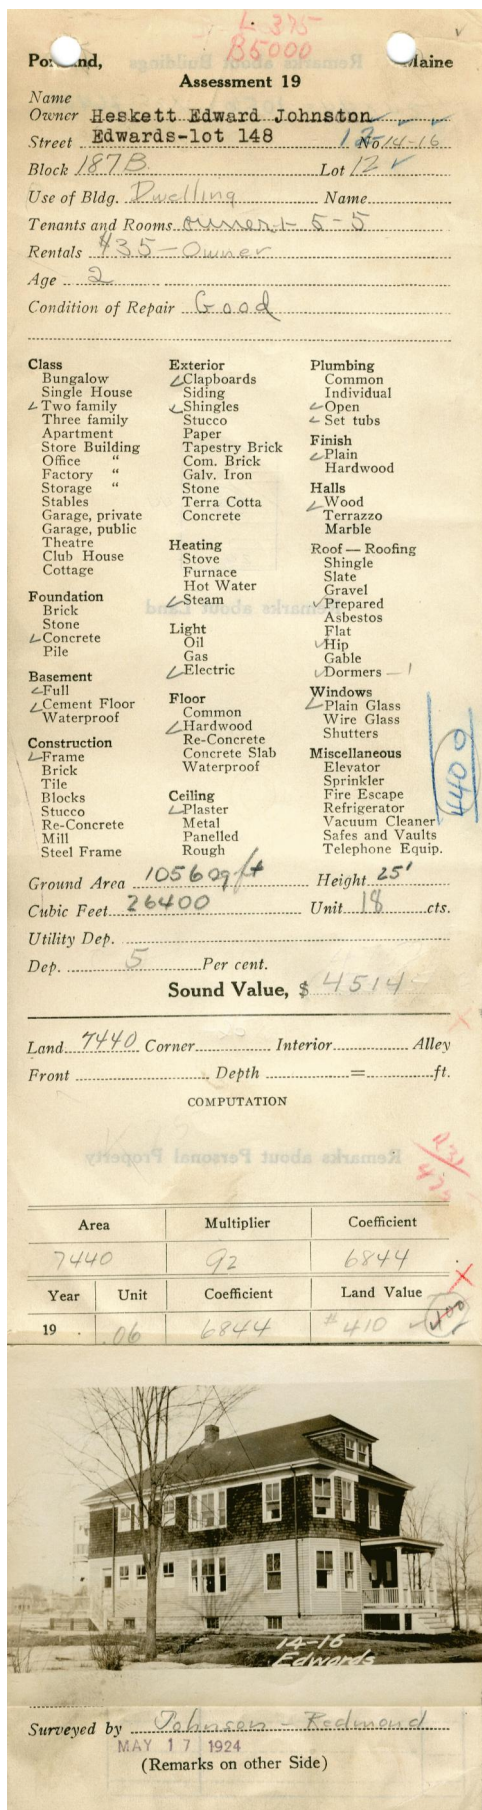 L 375
B5000
Portland, Maine
Assessment 19
Name
Owner Heskett Edward Johnston
Street Edwards-lot 148 12 No 14-16
Block 187B Lot 12
Use of Bldg. Dwelling Name
Tenants and Rooms owner + 5-5
Rentals $35-Owner
Age 2
Condition of Repair Good
Class
Bungalow
Single House
✓ Two family
Three family
Apartment
Store Building
Office "
Factory "
Storage "
Stables
Garage, private
Garage, public
Theatre
Club House
Cottage
Foundation
Brick
Stone
✓ Concrete
Pile
Basement
✓ Full
✓ Cement Floor
Waterproof
Construction
✓ Frame
Brick
Tile
Blocks
Stucco
Re-Concrete
Mill
Steel Frame
Exterior
✓ Clapboards
Siding
✓ Shingles
Stucco
Paper
Tapestry Brick
Com. Brick
Galv. Iron
Stone
Terra Cotta
Concrete
Heating
Stove
Furnace
Hot Water
✓ Steam
Light
Oil
Gas
✓ Electric
Floor
Common
✓ Hardwood
Re-Concrete
Concrete Slab
Waterproof
Ceiling
✓ Plaster
Metal
Panelled
Rough
Plumbing
Common
Individual
✓ Open
✓ Set tubs
Finish
✓ Plain
Hardwood
Halls
✓ Wood
Terrazzo
Marble
Roof — Roofing
Shingle
Slate
Gravel
✓ Prepared
Asbestos
Flat
✓ Hip
Gable
✓ Dormers - 1
Windows
✓ Plain Glass
Wire Glass
Shutters
Miscellaneous
Elevator
Sprinkler
Fire Escape
Refrigerator
Vacuum Cleaner
Safes and Vaults
Telephone Equip.
4400
Ground Area 1056 sq ft Height 25'
Cubic Feet 26400 Unit 18 cts.
Utility Dep.
Dep. 5 Per cent.
Sound Value, $ 4514
Land 7440 Corner Interior Alley
Front Depth = ft.
COMPUTATION
Area Multiplier Coefficient
7440 92 6844
Year Unit Coefficient Land Value
19 .06 6844 $410 400
14-16
Edwards
Surveyed by Johnson - Redmond
MAY 17 1924
(Remarks on other Side)